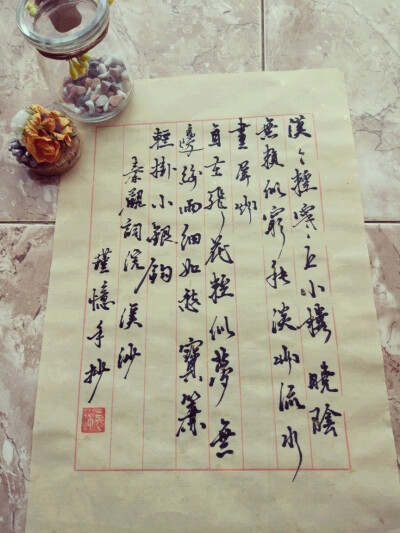 漠々輕寒上小樓 曉陰
無賴似窮秋 淡烟流水
畫屏幽
自在飛花輕似夢 無
邊絲雨細如愁 寶簾
輕掛小銀鈎
秦觀詞浣溪沙
瑾憶手抄